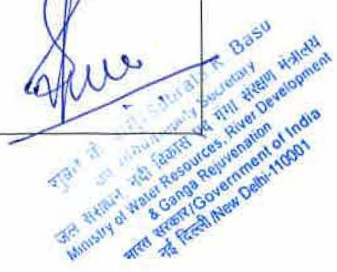 Basu
Secretary
जल संसाधन, नदी विकास व गंगा संरक्षण मंत्रालय
Ministry of Water Resources, River Development
& Ganga Rejuvenation
भारत सरकार/Government of India
नई दिल्ली/New Delhi-110001